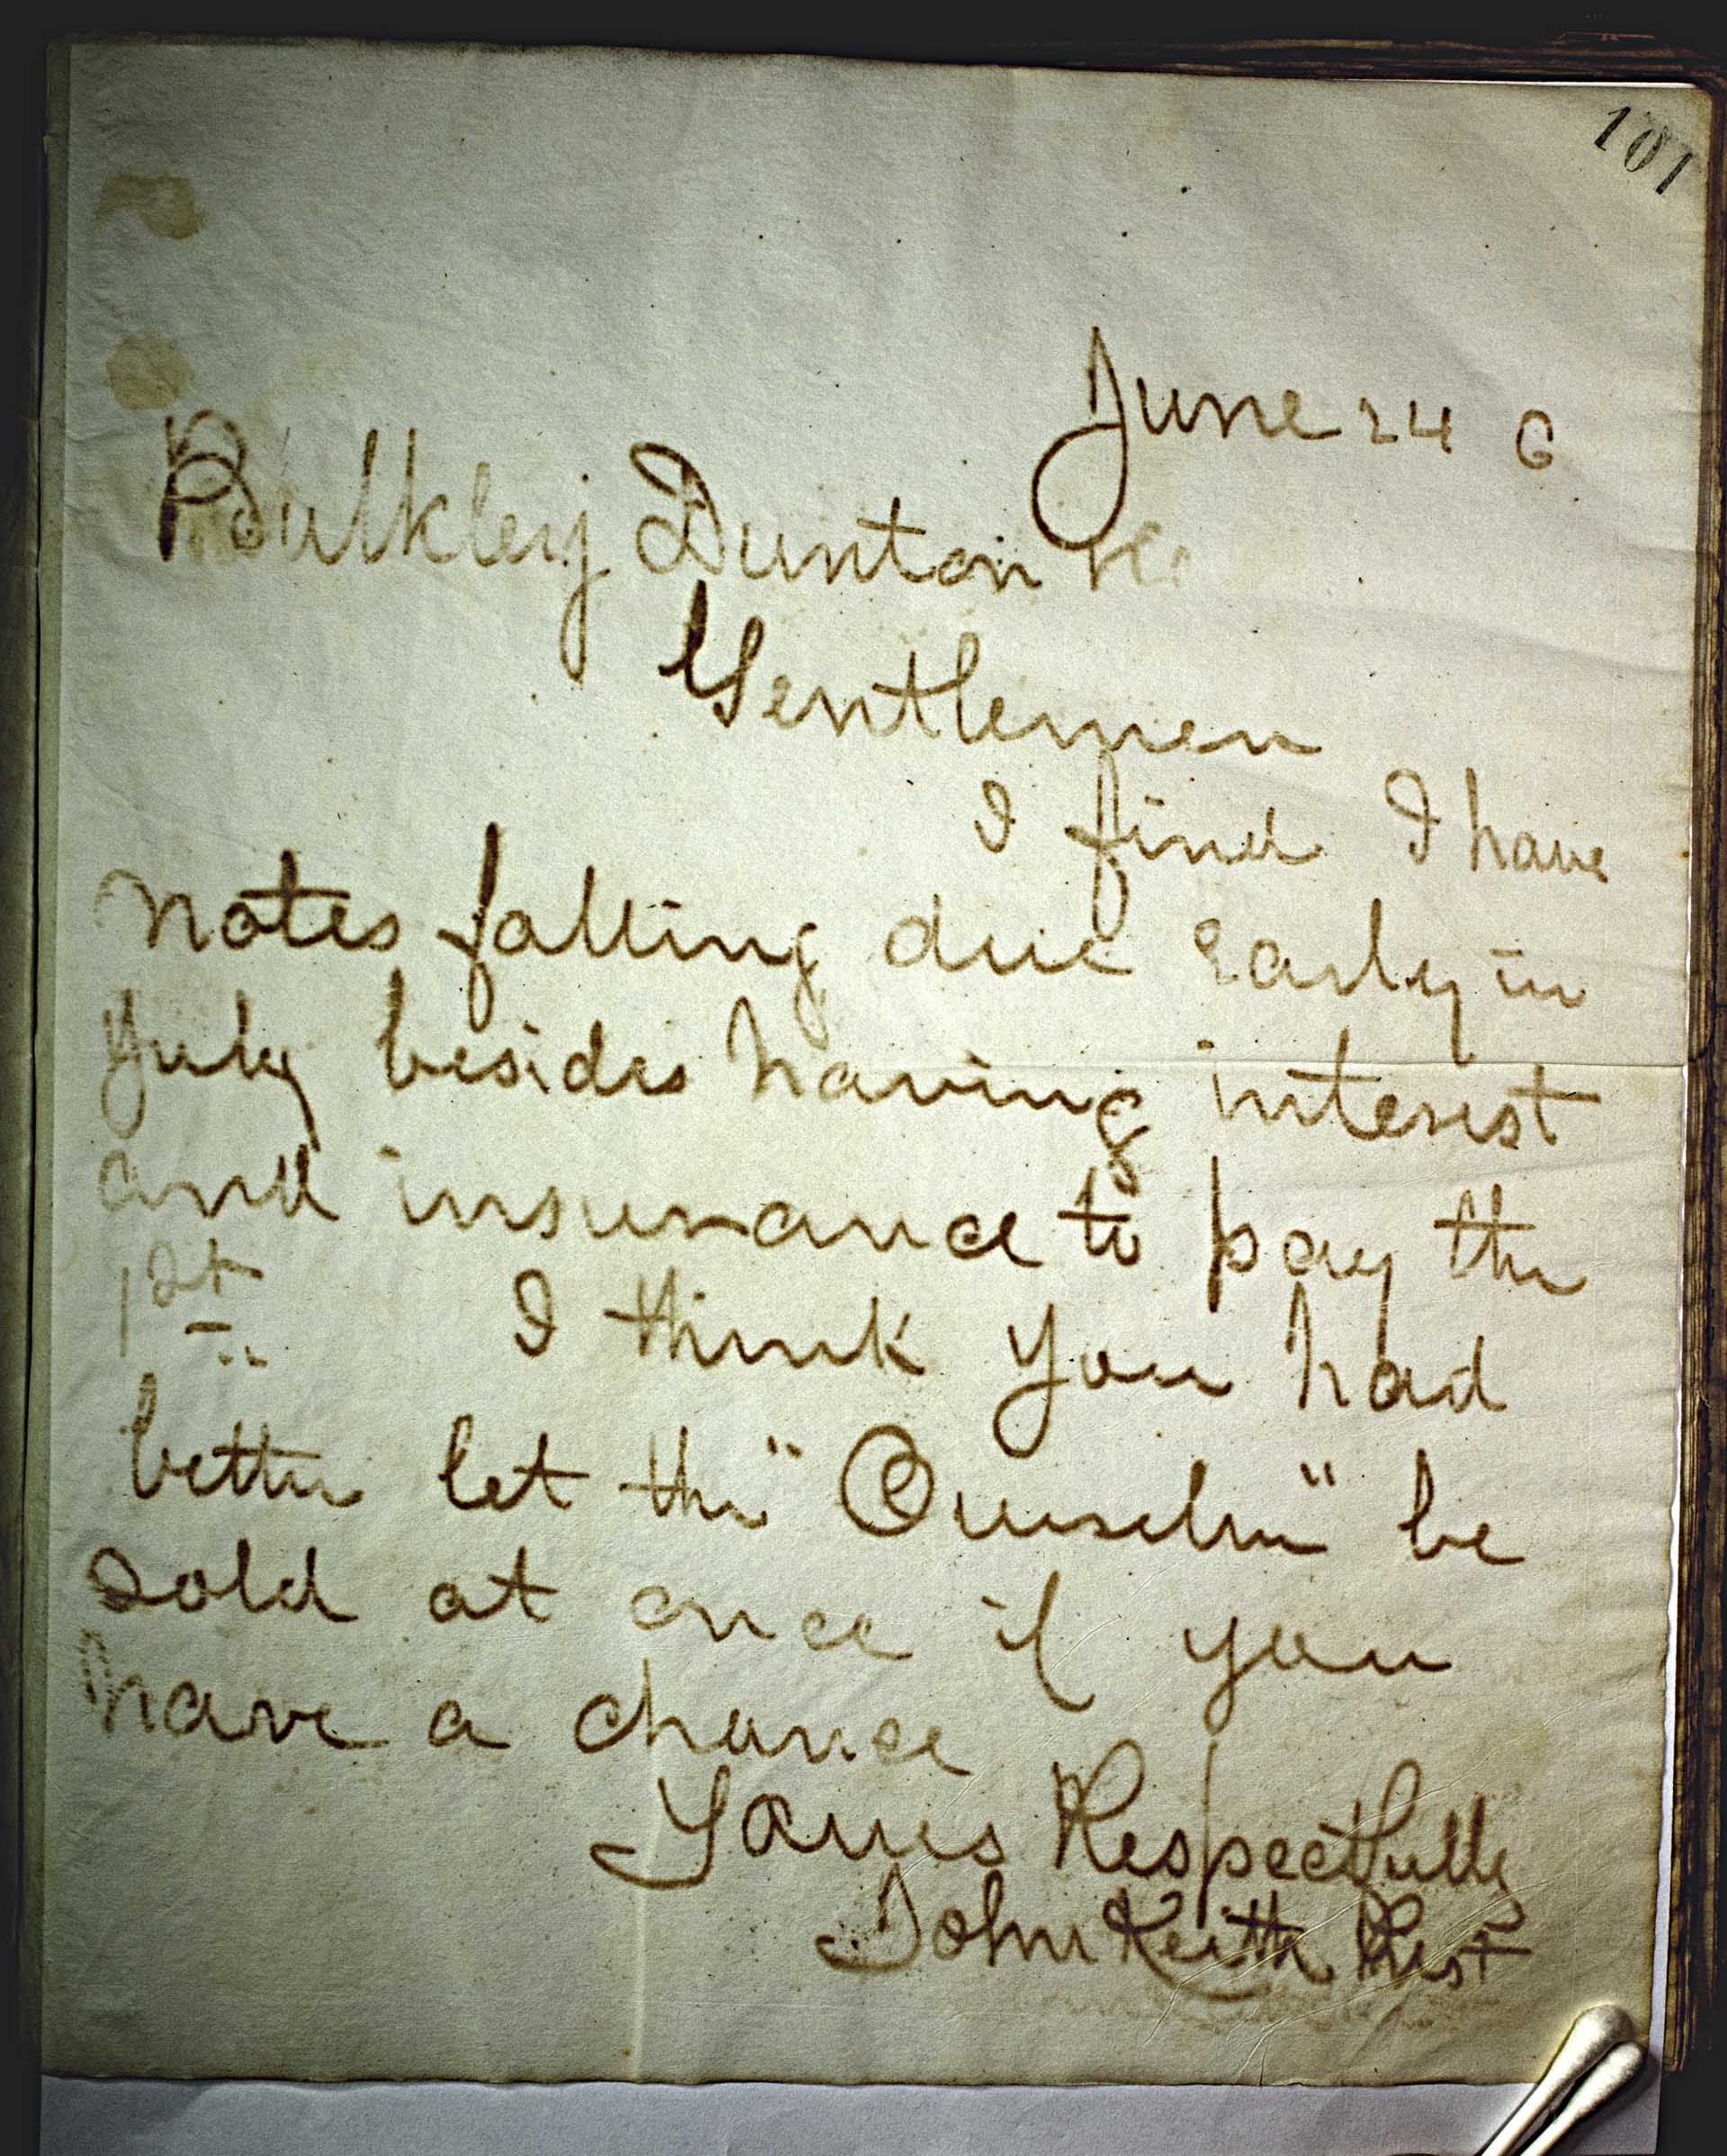 101
June 24 6
Bulkley Dunton &Co
Gentlemen
I find I have
notes falling due early in
July besides having interest
and insurance to pay the
1st I think you had
better let the " " be
sold at once if you
have a chance
Yours Respectfully
John Keith Prest